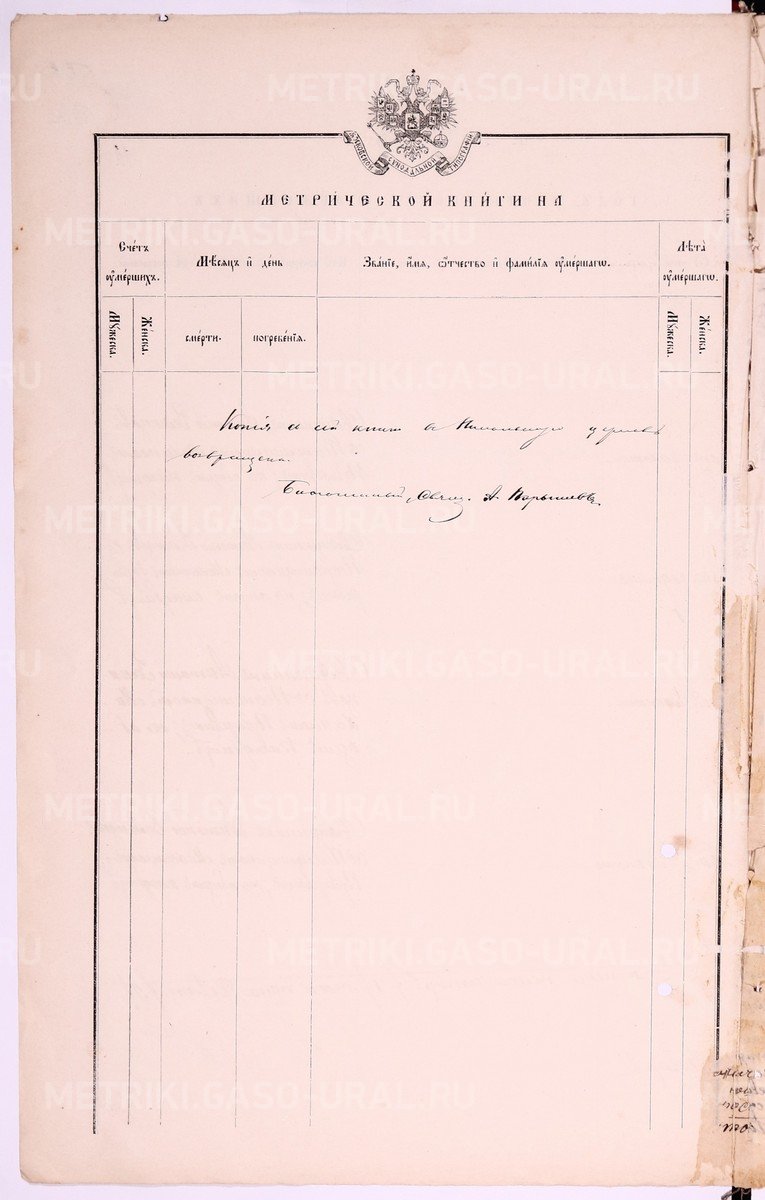 METRIKI.GASO-URAL.RU
МЕТРИ́ЧЕСКОЙ КНИ́ГИ НА
Сче́тъ ᲂумéршихъ.
Мѣ́сяцъ и де́нь
Зва́нїе, и́мя, ѻ́тчество и фами́лїя ᲂуме́ршагѡ.
Лѣта̀ ᲂуме́ршагѡ.
Му́жеска.
Же́нска.
сме́рти.
погребе́нїя.
Му́жеска.
Же́нска.
Копія съ сей книги въ Никольскую церковь
возвращена.
Благочинный, Свящ. А. Барышевъ